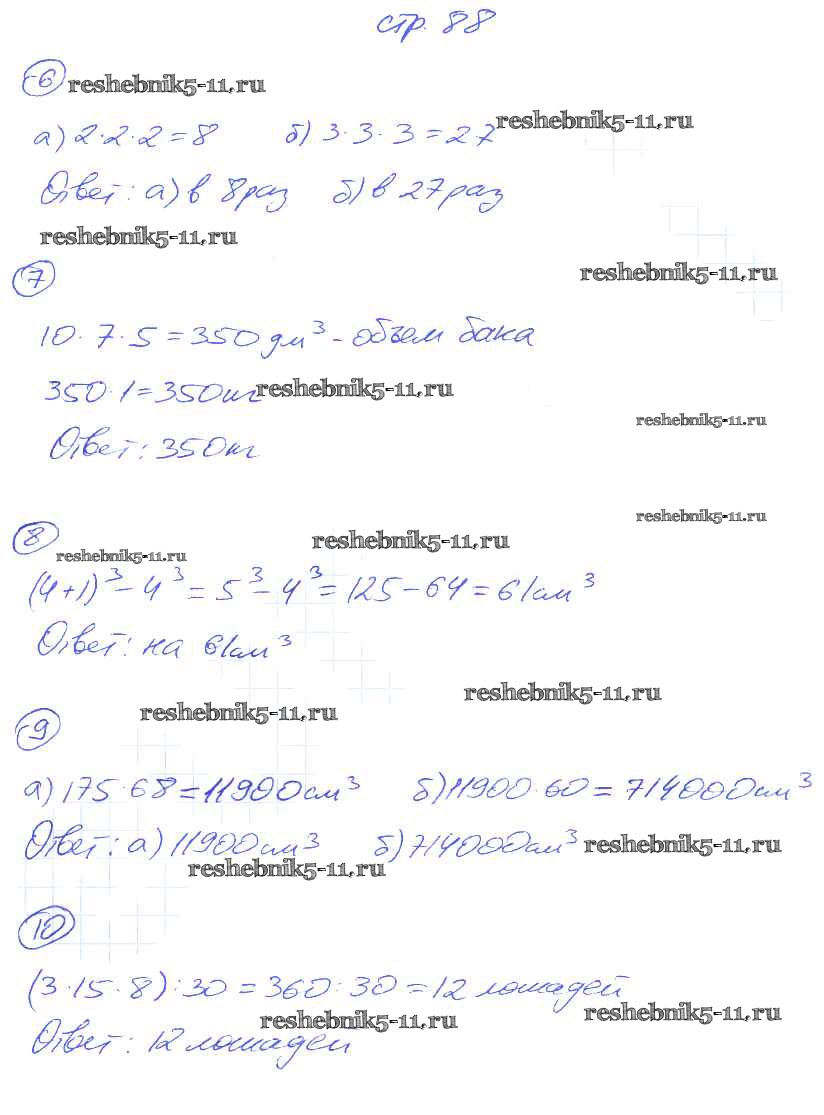 стр. 88
6 reshebnik5-11.ru
а) 2·2·2=8 б) 3·3·3=27 reshebnik5-11.ru
Ответ: а) в 8 раз б) в 27 раз
reshebnik5-11.ru
7 reshebnik5-11.ru
10·7·5=350 дм³ - объем бака
350·1=350 кг reshebnik5-11.ru
reshebnik5-11.ru
Ответ: 350 кг
reshebnik5-11.ru
8 reshebnik5-11.ru
reshebnik5-11.ru
(4+1)³-4³=5³-4³=125-64=61 см³
Ответ: на 61 см³
reshebnik5-11.ru
reshebnik5-11.ru
9
а) 175·68=11900 см³ б) 11900·60=714000 см³
Ответ: а) 11900 см³ б) 714000 см³ reshebnik5-11.ru
reshebnik5-11.ru
10
(3·15·8):30=360:30=12 лошадей
reshebnik5-11.ru reshebnik5-11.ru
Ответ: 12 лошадей